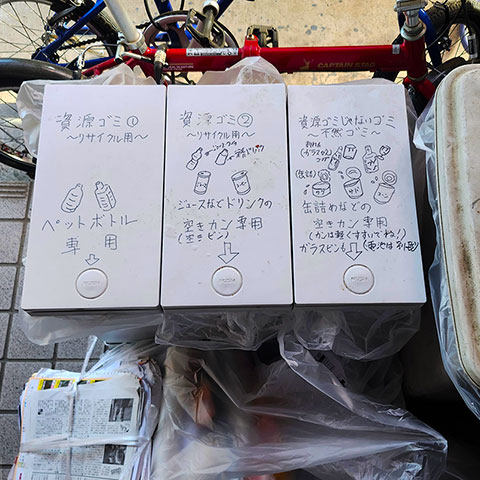 CAPTAIN STAG
資源ゴミ①
~リサイクル用~
ペットボトル
専用
資源ゴミ②
~リサイクル用~
ジュースなどドリンクの
空きカン専用
(空きビン)
資源ゴミじゃないゴミ
~不燃ゴミ~
(ガラスビン)
(缶詰)
缶詰めなどの
空きカン専用
(カンは軽くすすいでね!)
ガラスビンも